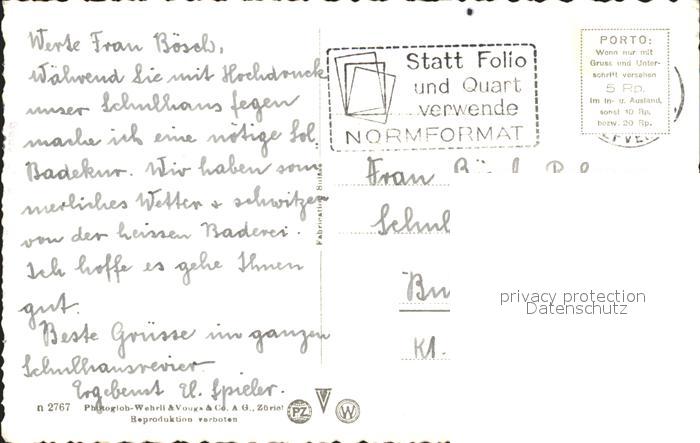 Werte Frau Bösch,
Während Sie mit Hochdruck
unser Schulhaus fegen
mache ich eine nötige Sol.
Badekur. Wir haben som
merliches Wetter + schwitzen
von der heissen Baderei.
Ich hoffe es gehe Ihnen
gut.
Beste Grüsse im ganzen
Schulhausrevier.
Ergebenst El. Spieler.
n 2767 Photoglob-Wehrli & Vouga & Co. A. G., Zürich
Reproduktion verboten
PZ
V
W
Statt Folio
und Quart
verwende
NORMFORMAT
PORTO:
Wenn nur mit
Gruss und Unter-
schrift versehen
5 Rp.
im In- u. Ausland,
sonst 10 Rp.
bezw. 20 Rp.
Frau
Schul
Bu
Kt.
privacy protection
Datenschutz